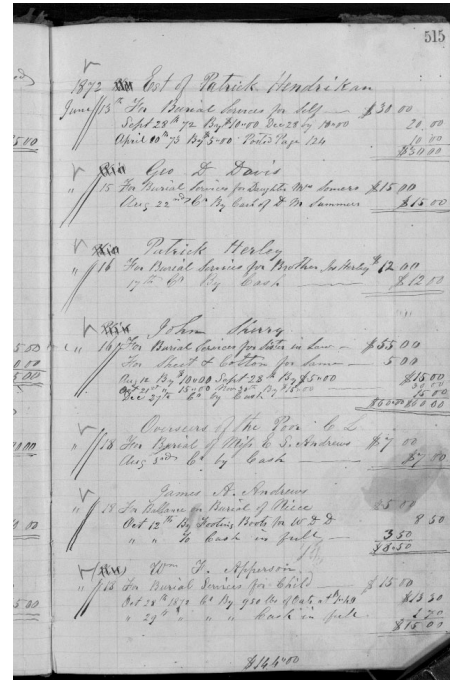 515
1872 Est of Patrick Hendrikan
June 13th For Burial Services for Self — $30 00
Sept 28th 72 By $10-00 Dec 28 by 10-00 20 00
April 10th 73 By $5-00 Posted Page 124 10 00
$30 00
Geo D Davis
" 15 For Burial Service for Daughter Mrs Somers $15 00
Aug 22nd Cr By Cash of D M Sammers $15 00
Patrick Herley
" 16 For Burial Services for Brother Jas Herley $12 00
17th Cr By Cash $12 00
John Sherry
" 16 For Burial Services for Sister in Law — $55 00
For Sheet & Cotton for Same — 5 00
Aug 12 By $10-00 Sept 28th By $5-00 $15 00
Cr by Cash 15 00
$60 00 $60 00
Overseers of the Poor C L
" 18 For Burial of Miss E. S. Andrews $7 00
Aug 3rd Cr by Cash $7 00
James A. Andrews
" 18 For on Burial of Niece
Oct 12th By Footing Boots for W D D 8 50
" " To Cash in full — 3 50
$8.50
Wm F. Apperson
" 18 For Burial Services for Child — $15 00
Oct 28th 1872 Cr By 950 lbs of Oats $13 30
" 29th " " " Cash in full 1 70
$15 00
$144 00